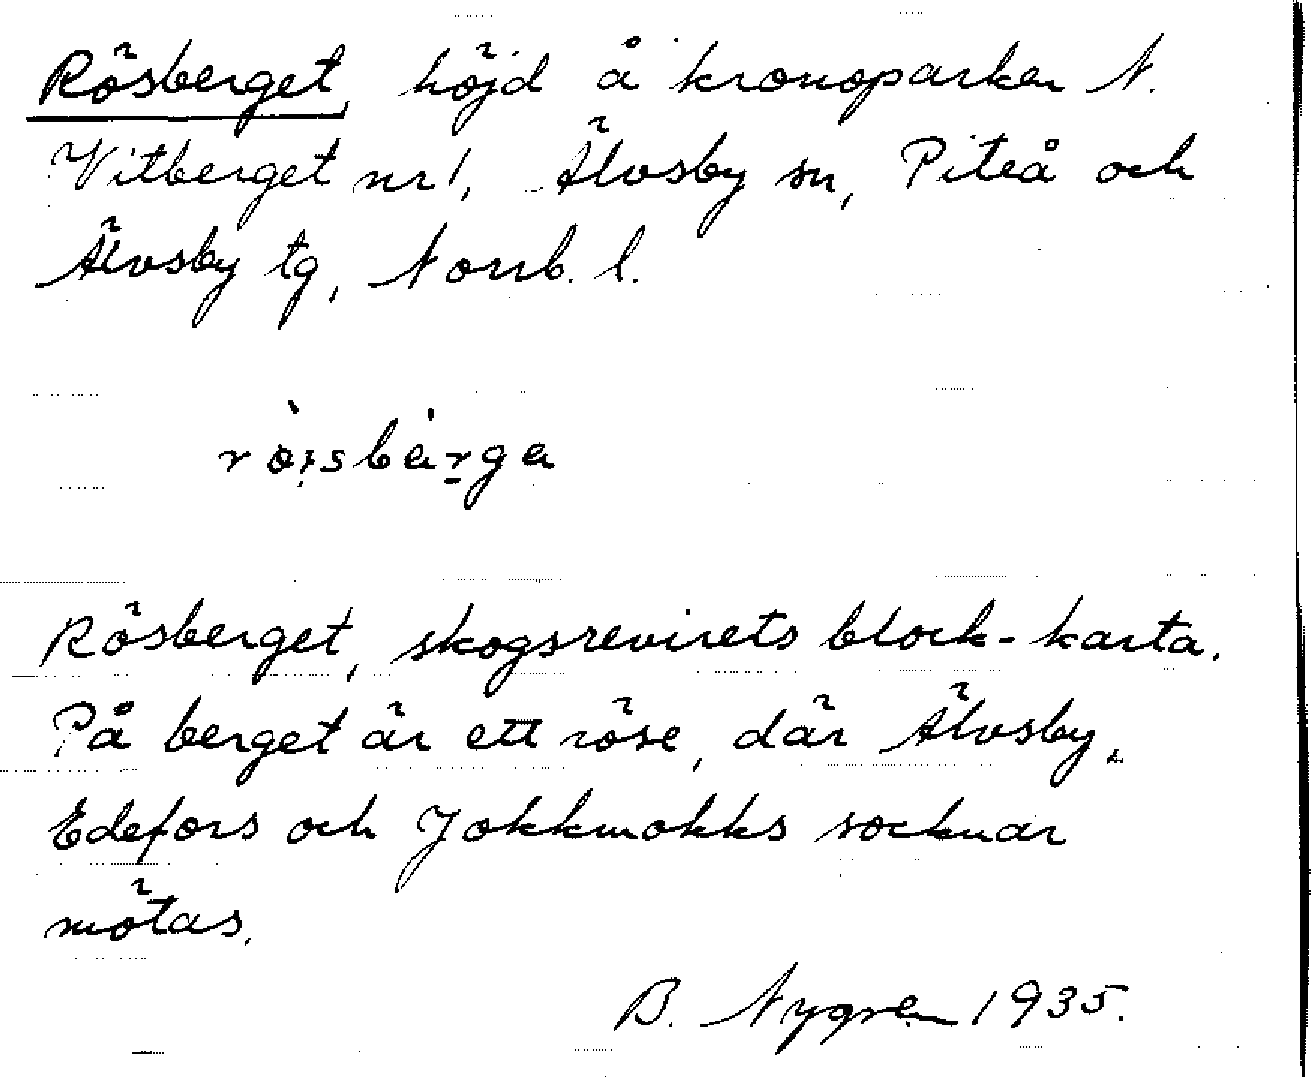 Rösberget, höjd å kronoparken N.
Vitberget nr 1, Älvsby sn, Piteå och
Älvsby tg, Norrb. l.
Rösberget, skogsrevirets block-karta.
På berget är ett röse, där Älvsby,
Edefors och Jokkmokks socknar
mötas.
B. Nygren 1935.